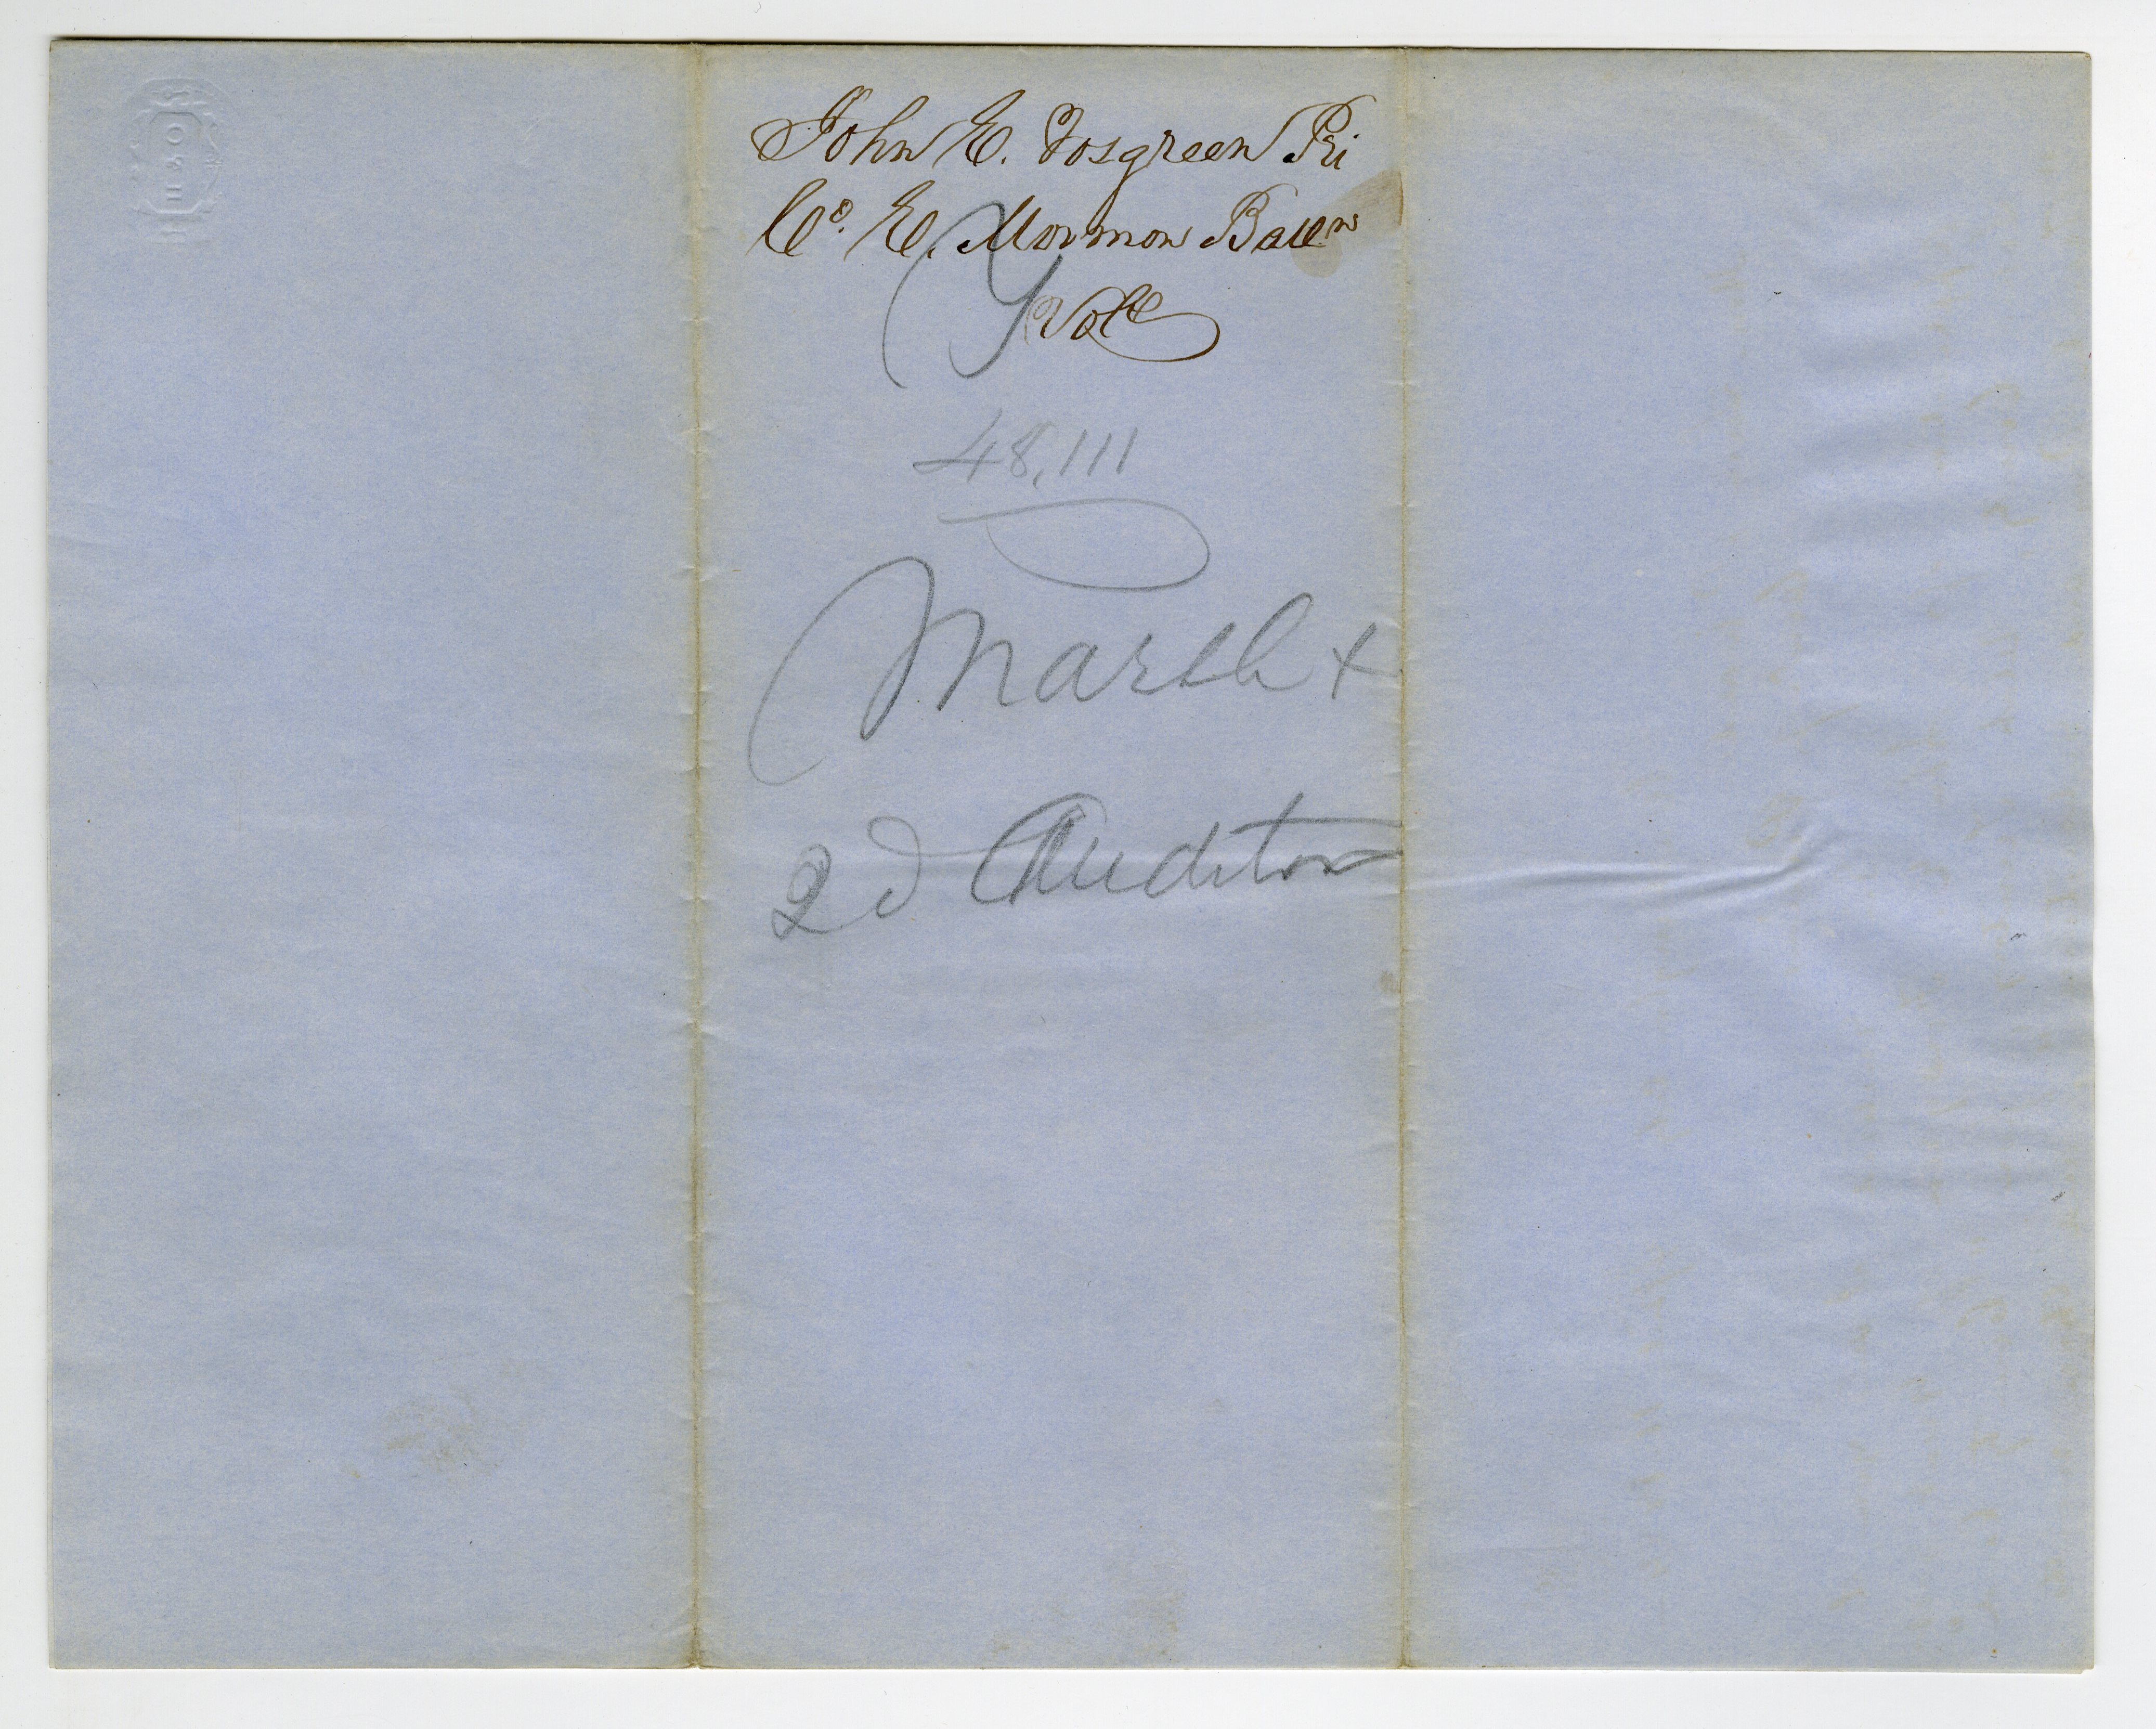 John E. Fosgreen Pri
Co. E. Mormon Batt n
Vols
48,111
Marsh +
2d Auditor